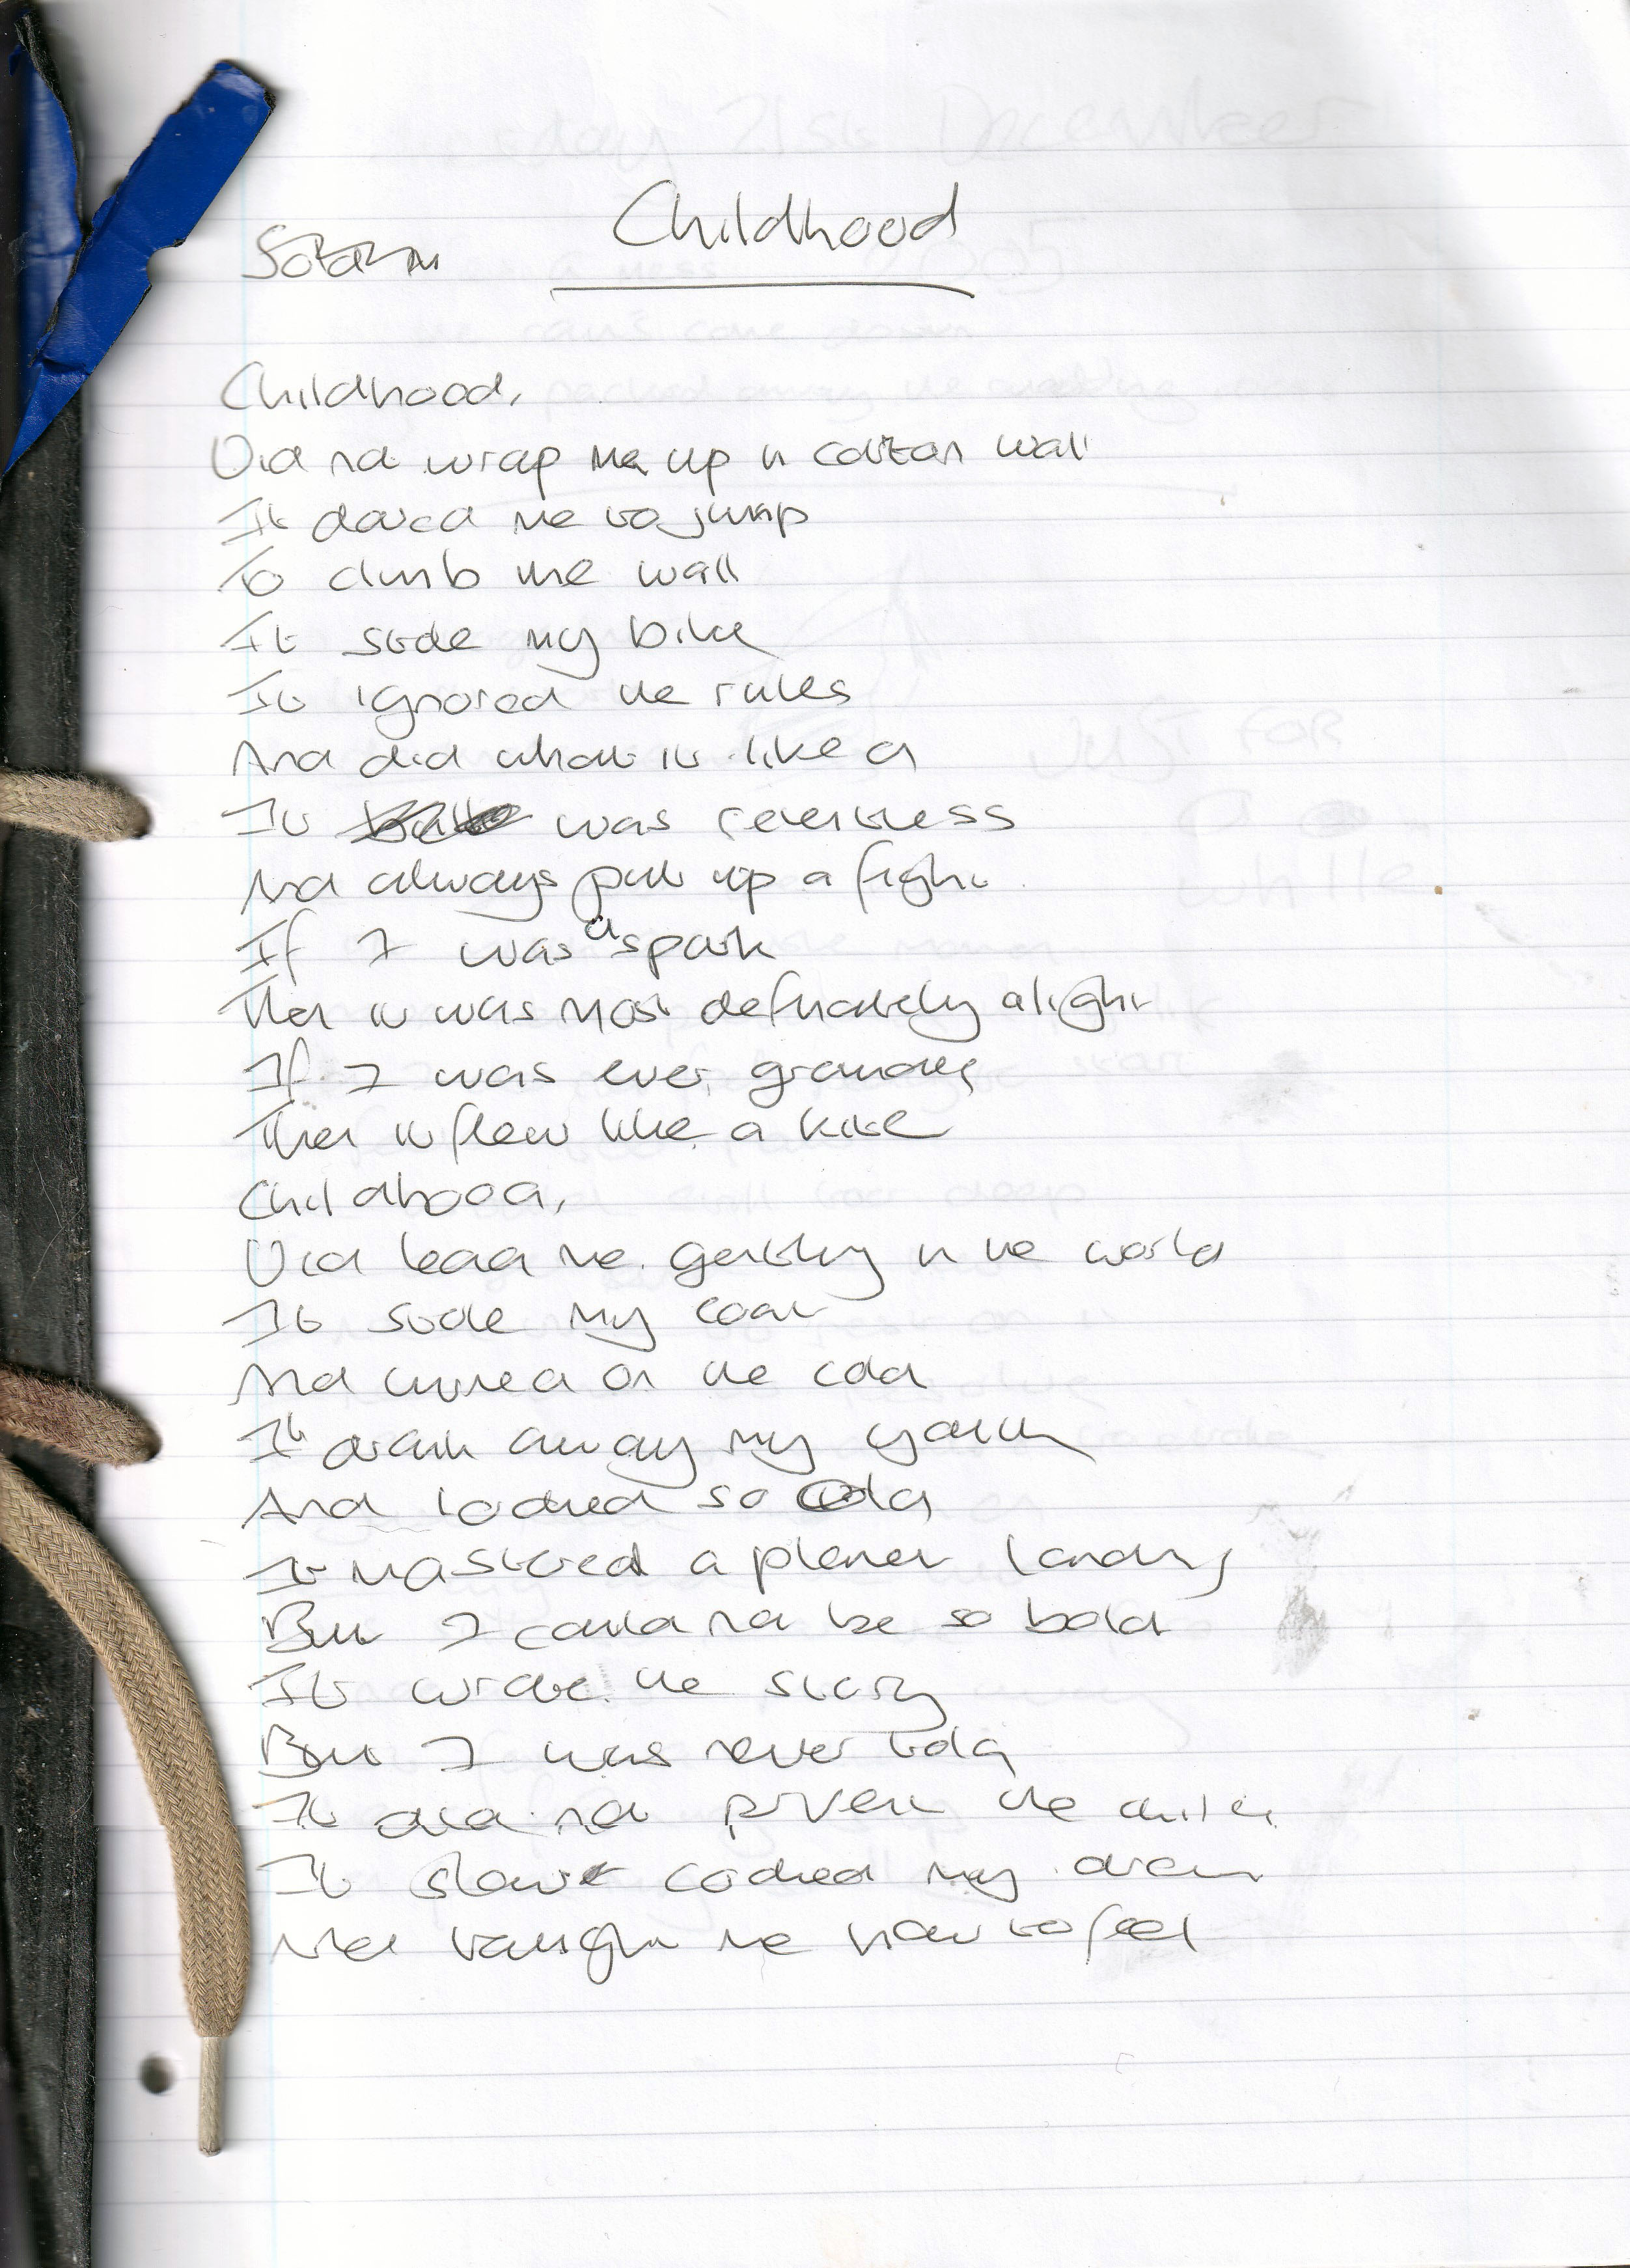 Childhood
Childhood,
Did not wrap me up in cotton wool
It dared me to jump
To climb the wall
It stole my bike
It ignored the rules
And did what it liked
It was relentless
And always put up a fight
If I was a spark
Then it was most definately alight
If I was ever grounded
Then it flew like a kite
Childhood,
Did lead me gently in the world
It stole my coat
And turned on the cold
It drank away my youth
And looked so old
It mastered a planet landing
But I could not be so bold
It wrote the story
But I was never told
It did not prevent the
It slow cooked my dream
And taught me how to feel